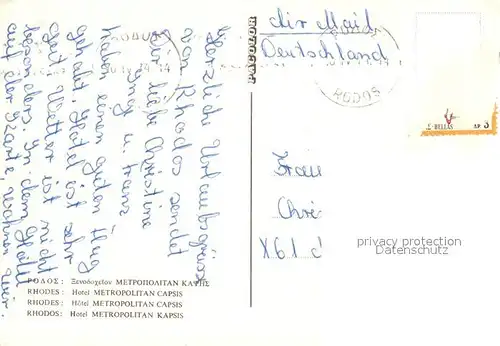 Herzliche Urlaubsgrüsse
von Rhodos sendet
Dir liebe Christine
Inge u. Franz
Haben einen guten Flug
gehabt. Hotel ist sehr
gut Wetter ist nicht
besonders. In dem Hotel
auf der Karte, wohnen wir.
Air Mail
Deutschland
RODOS
Frau
Chri
X61
privacy protection
Datenschutz
ΡΟΔΟΣ: Ξενοδοχεῖον ΜΕΤΡΟΠΟΛΙΤΑΝ ΚΑΨΗΣ
RHODES: Hotel METROPOLITAN CAPSIS
RHODES: Hôtel METROPOLITAN CAPSIS
RHODOS: Hotel METROPOLITAN KAPSIS